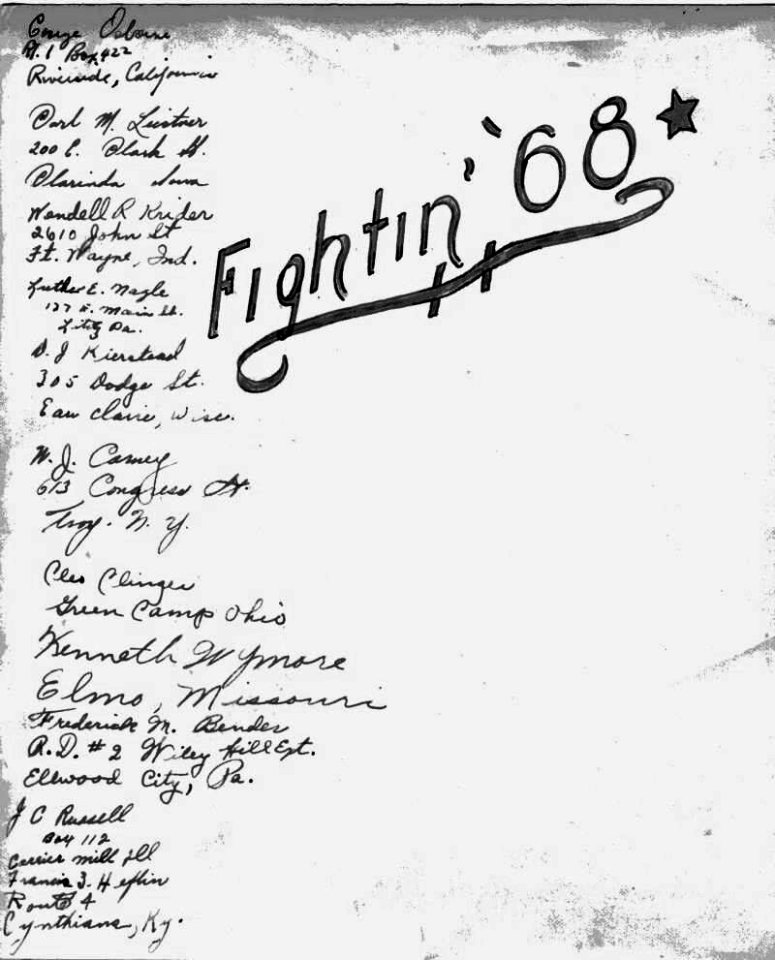 George Osborne
Rt. 1 Box 422
Riverside, California
Carl M. Leistner
200 E. Clark St.
Clarinda Iowa
Wendell R Krider
2610 John St
Ft. Wayne, Ind.
Luther E. Nagle
127 E. Main St.
Lititz Pa.
D. J Kierstead
305 Dodge St.
Eau Claire, Wisc.
W. J. Carney
613 Congress St.
Troy. N. Y.
Cleo Clinger
Green Camp Ohio
Kenneth Wymore
Elmo, Missouri
Frederick M. Bender
R.D. # 2 Wiley Hill Ext.
Ellwood City, Pa.
J C Russell
Box 112
Carrier Mill Ill
Francis J. Heflin
Route 4
Cynthiana, Ky.
Fightin' '68